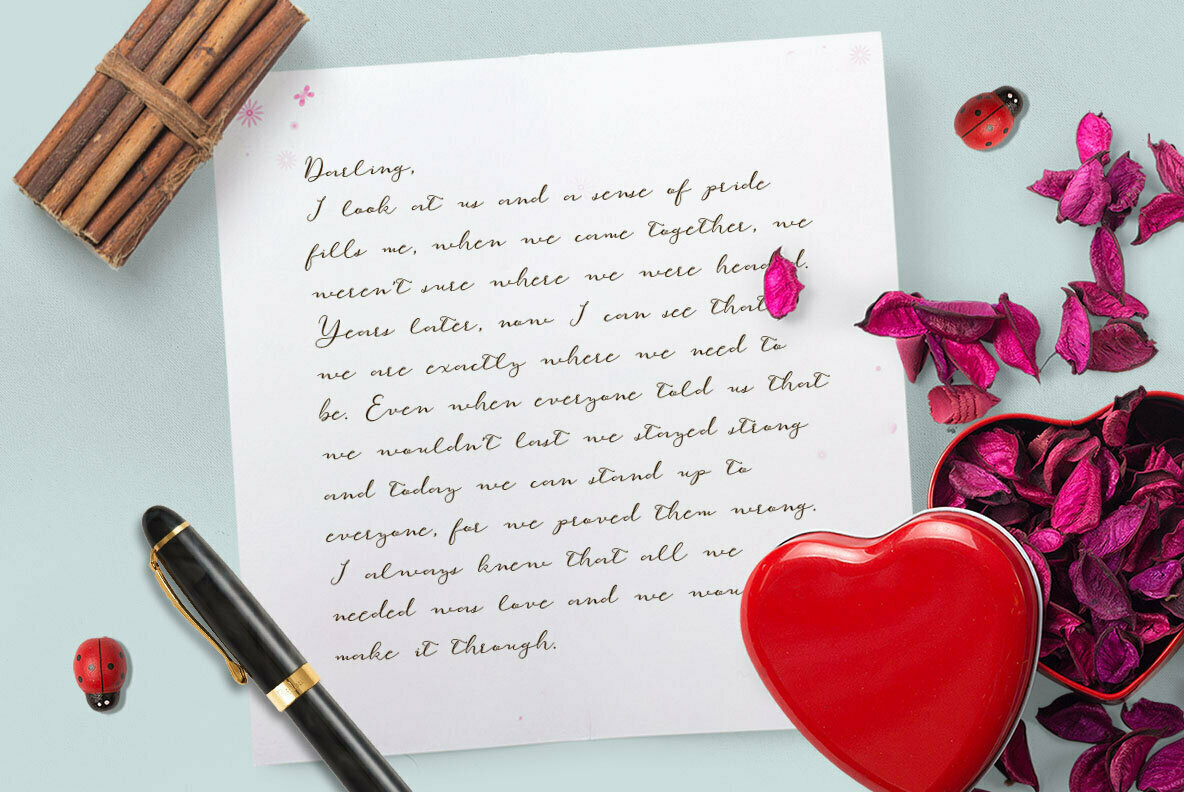 Darling,
I look at us and a sense of pride
fills me, when we came together, we
weren't sure where we were headed.
Years later, now I can see that
we are exactly where we need to
be. Even when everyone told us that
we wouldn't last we stayed strong
and today we can stand up to
everyone, for we proved them wrong.
I always knew that all we
needed was love and we
make it through.